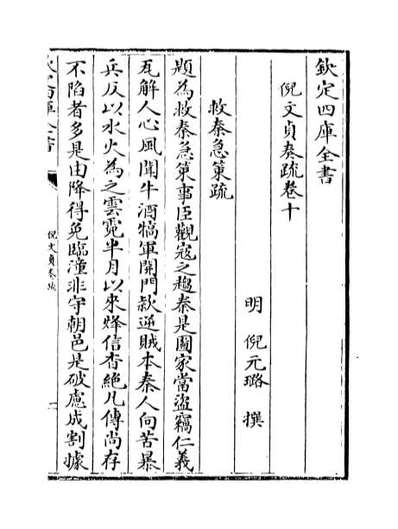 欽定四庫全書
倪文貞奏疏卷十
明 倪元璐 撰
救秦急策疏
題為救秦急策事臣觀寇之趨秦是國家當盜竊仁義
瓦解人心風聞牛酒犒軍開門款逆賊本秦人向苦暴
兵反以水火為之雲霓半月以來烽信杳絶凡傳尚存
不陷者多是由降得免臨潼非守朝邑是破慮成割據
倪文貞奏疏